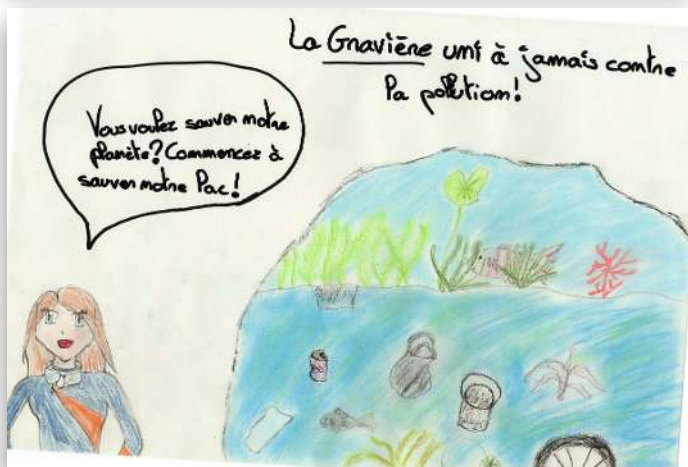 La Gravière uni à jamais contre
la pollution!
Vous voulez sauver notre
planète? Commencez à
sauver notre lac!